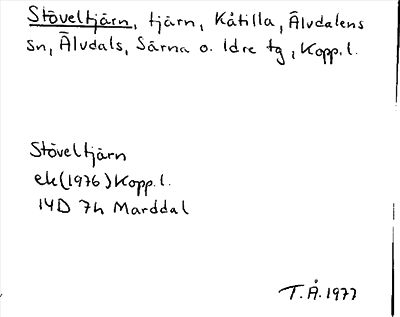 Stöveltjärn, tjärn, Kåtilla, Älvdalens
sn, Älvdals, Särna o. Idre tg, Kopp. l.
Stöveltjärn
ek (1976) Kopp. l.
14D 7h Marddal
T. Å. 1977